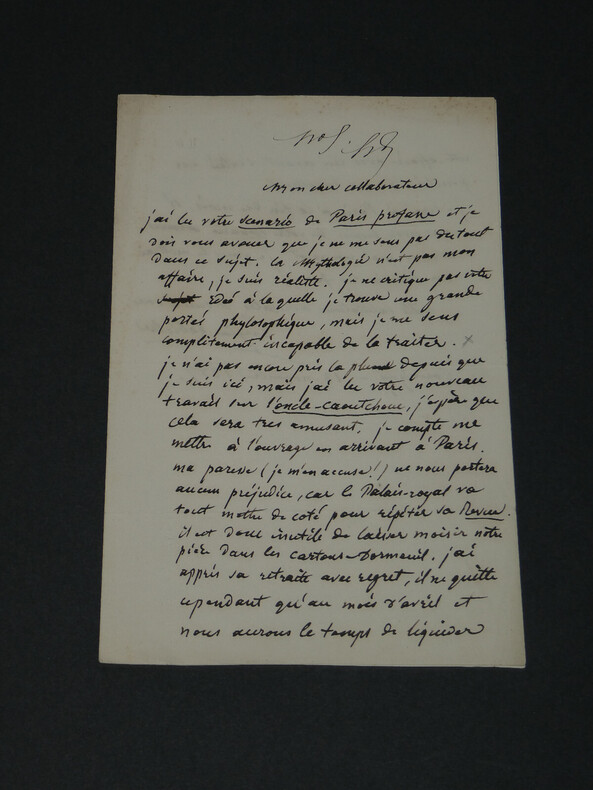 Mon cher collaborateur
j'ai lu votre scenario de Paris profane et je
dois vous avouer que je ne me sens pas du tout
dans ce sujet. la Mythologie n'est pas mon
affaire, je suis réaliste. je ne critique pas votre
sujet idée à laquelle je trouve une grande
portée phylosophique, mais je me sens
complitement incapable de la traiter. x
je n'ai pas encore pris la plume depuis que
je suis ici, mais j'ai lu votre nouveau
travail sur l'oncle-caoutchouc, j'espère que
cela sera tres amusant. je compte me
mettre à l'ouvrage en arrivant à Paris.
ma paresse (je m'en accuse!) ne nous portera
aucun préjudice, car le Palais-royal va
tout mettre de coté pour répéter sa Revue.
il est donc inutile de laisser moisir notre
pièce dans les cartons-Dormeuil. j'ai
appris sa retraite avec regret, il ne quitte
cependant qu'au mois d'avril et
nous aurons le temps de liquider